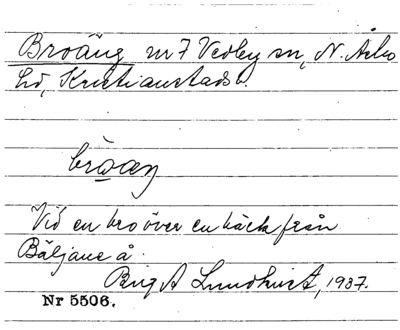 Broäng nr 7 Vedby sn, N. Åsbo
hd, Kristianstads l.
bròaŋ
Vid en bro över en bäck från
Bäljane å.
Birgit Lundkvist, 1937.
Nr 5506.